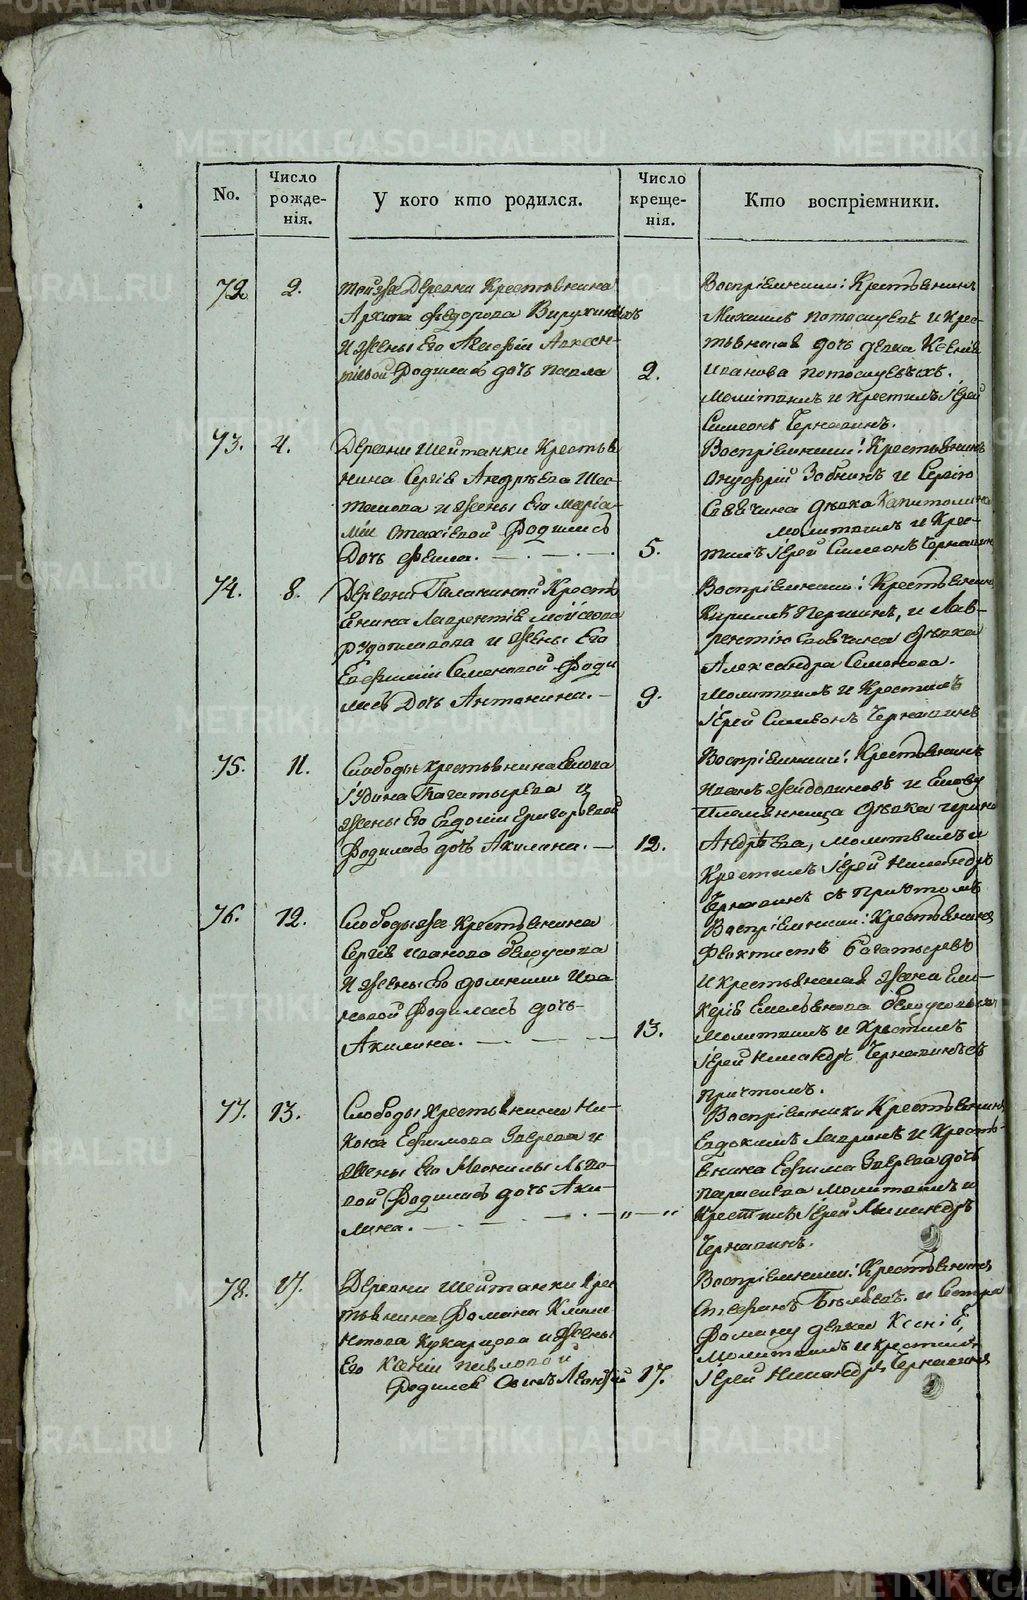 METRIKI.GASO-URAL.RU
No.
Число рожде-нія.
У кого кто родился.
Число креще-нія.
Кто воспріемники.
72. 2.
тойже Деревни Крестьянина
Архипа Федорова Вирухина
и жены Его
родилась дочь Павла
2.
Воспріемники: Крестьянинъ
Михаилъ Потоскуевъ и Крес-
тьянская дочь девка Ксенія
Иванова Потоскуевыхъ.
Молитвилъ и Крестилъ Іерей
Симеонъ Чернавинъ.
73. 4.
Деревни Шейтанки Крестья
нина Сергія Андреева Шес-
такова и жены Его Маріа-
Родилась
Дочь Фекла.
5.
Воспріемники: Крестьянинъ
Онуфрій Зобнинъ и Сергію
девка Капитолина
молитвилъ и Крес-
тилъ Іерей Симеонъ Чернавин
74. 8.
Деревни Галаниной Кресть
янина Лаврентія Мойсеова
и жены Его
Евфимии Семеновой Роди
лась Дочь Антонина.
9.
Воспріемники: Крестьянинъ
Кириллъ Першинъ, и Лав-
рентію свойчина девка
Александра Семенова.
Молитвилъ и Крестилъ
Іерей Симеонъ Чернавинъ
75. 11.
Слободы Крестьянина
Богатырева и
жены Его Евдокіи Григорьевой
Родилась дочь Акилина.
12.
Воспріемники: Крестьянинъ
Иванъ и
Племянница девка Ирина
Андреева, молитвилъ и
Крестилъ Іерей Никандръ
Чернавинъ съ Причтомъ
76. 12.
Слободы же Крестьянина
Сергія Иванова Белоусова
и жены Его Домникии Ива
новой Родилась дочь
Акилина.
13.
Воспріемники: Крестьянинъ
Феоктистъ Багатыревъ
и крестьянская жена Гли-
керія Емельянова
Молитвилъ и Крестилъ
Іерей Никандръ Чернавинъ съ
Причтомъ.
77. 13.
Слободы крестьянина Ни-
кона Ефимова Зверева и
жены Его Неонилы Льво-
вой Родилась дочь Аки-
лина.
„ — „
Воспріемники Крестьянинъ
Евдокимъ Лавринъ и Кресть-
янина Ефима Зверева дочь
молитвилъ и
крестилъ Іерей Никандръ
Чернавинъ.
78. 17.
Деревни Шейтанки Крес
тьянина Романа Клими-
нтова Кукарцова и жены
Его Ксеніи Павловой
Родился Сынъ Леонтій
17.
Воспріемники: Крестьянинъ
Стефанъ и Сестра
Роману девка Ксенія,
Молитвилъ и крестилъ
Іерей Никандръ Чернавинъ